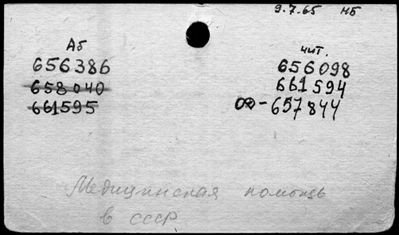 9.7.65 НБ
Аб
656386
658040
661595
чит.
656098
661594
00-657844
Медицинская помощь
в СССР